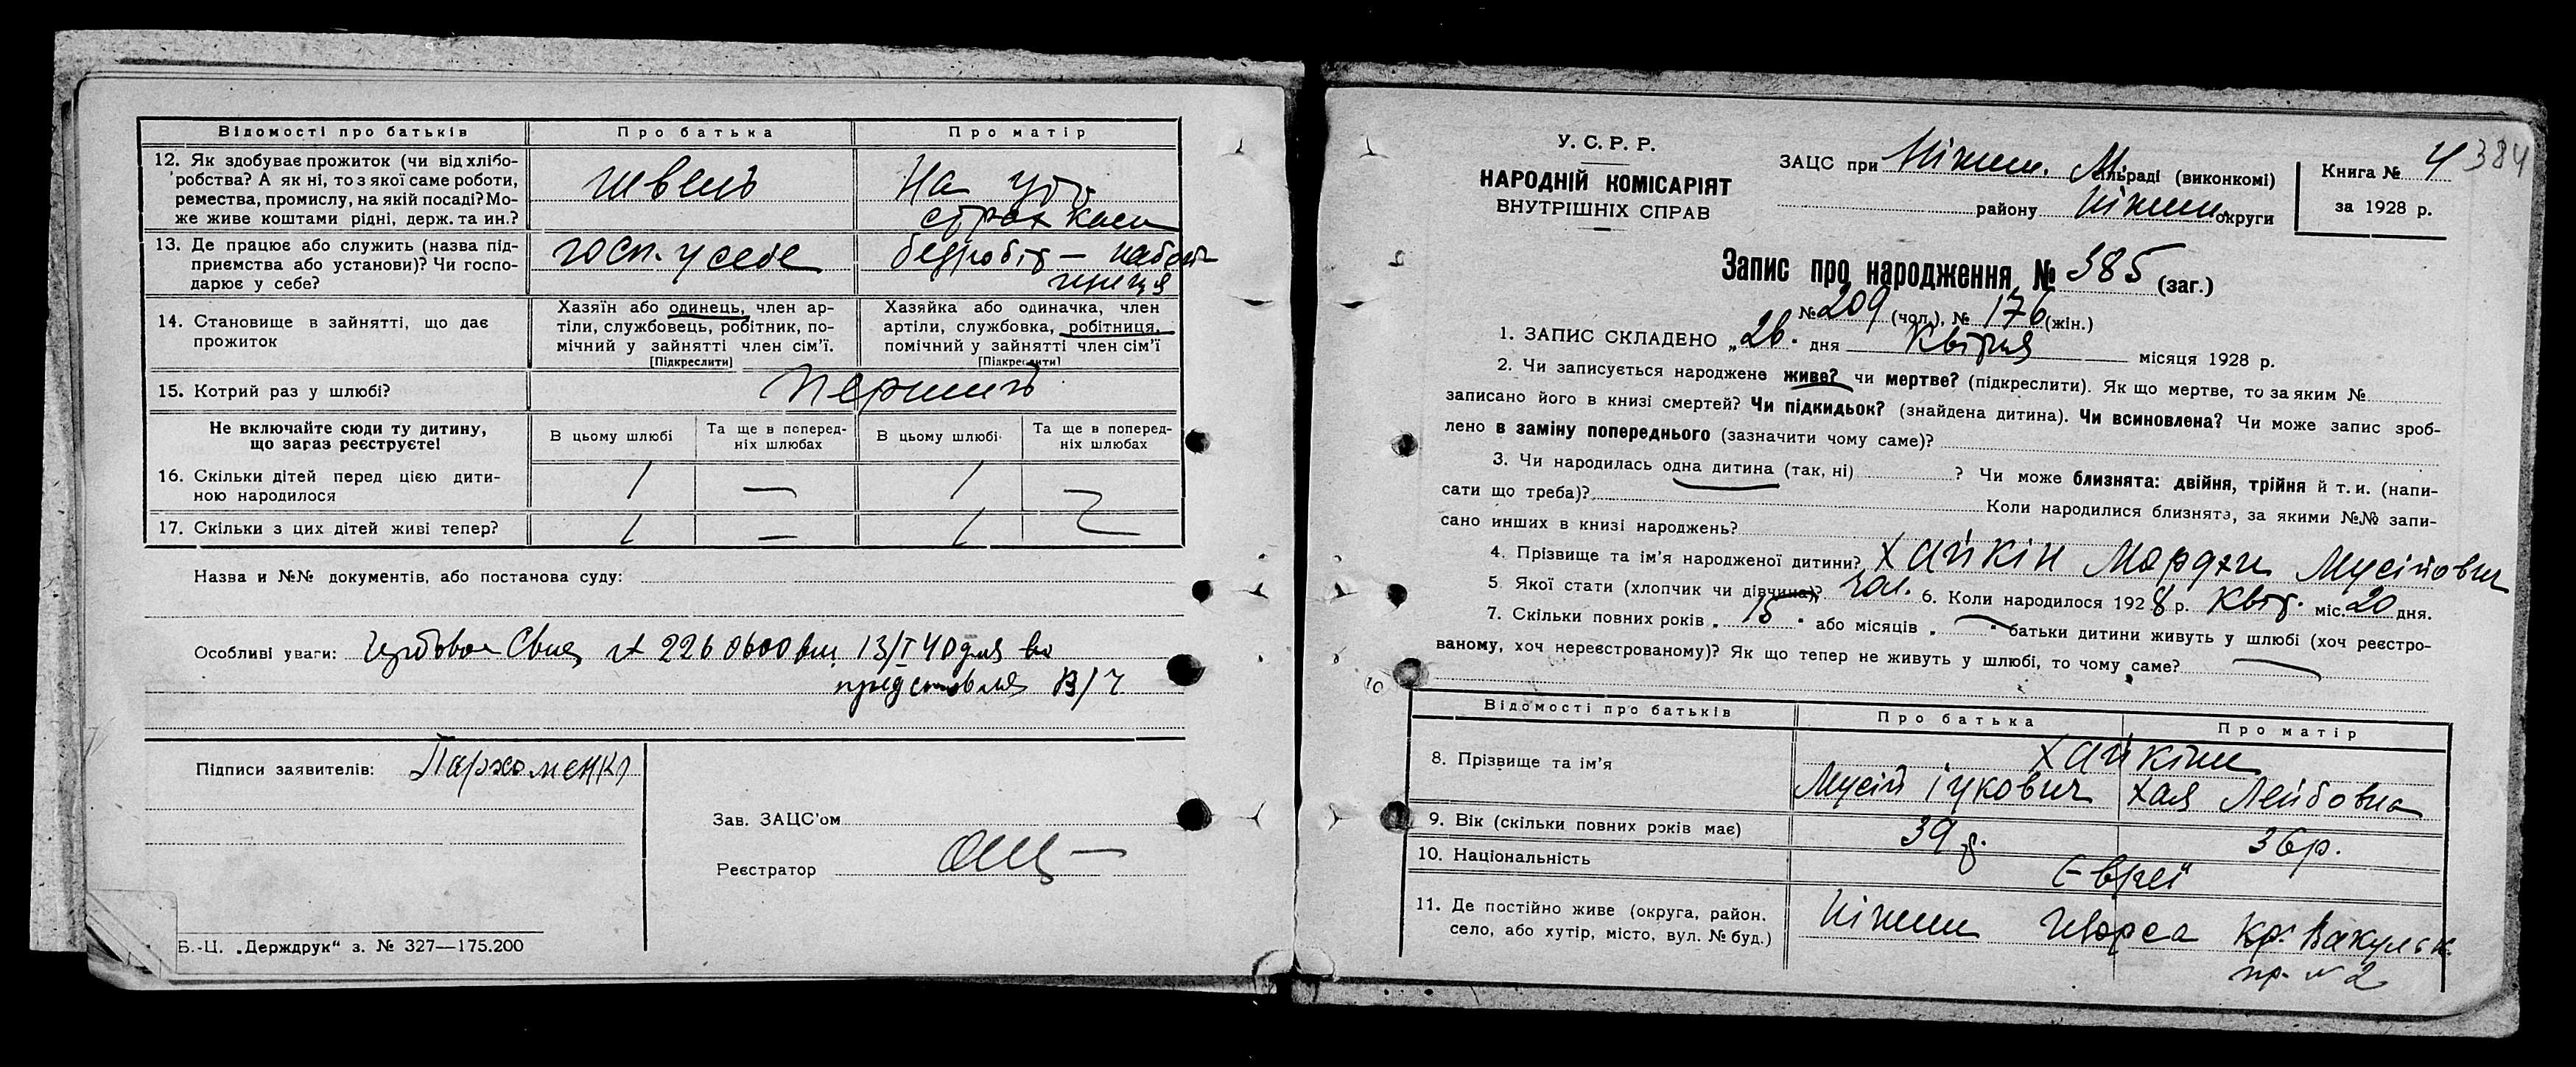 Відомості про батьків
Про батька
Про матір
12. Як здобуває прожиток (чи від хлібо-
робства? А як ні, то з якої саме роботи,
ремества, промислу, на якій посаді? Мо-
же живе коштами рідні, держ. та ин.?
швець
На
страх каси
13. Де працює або служить (назва під-
приємства або установи)? Чи госпо-
дарює у себе?
госп. у себе
безробіт —
14. Становище в зайнятті, що дає
прожиток
Хазяїн або одинець, член ар-
тіли, службовець, робітник, по-
мічний у зайнятті член сім'ї.
[Підкреслити]
Хазяйка або одиначка, член
артіли, службовка, робітниця,
помічний у зайнятті член сім'ї
[Підкреслити]
15. Котрий раз у шлюбі?
Не включайте сюди ту дитину,
що зараз реєструєте!
В цьому шлюбі
Та ще в поперед-
ніх шлюбах
В цьому шлюбі
Та ще в поперед-
ніх шлюбах
16. Скільки дітей перед цією дити-
ною народилося
1 — 1 —
17. Скільки з цих дітей живі тепер?
1 — 1 —
Назва и №№ документів, або постанова суду:
Особливі уваги: 13/I 40 для
В/Ч
Підписи заявителів: Пархоменко
Зав. ЗАЦС'ом
Реєстратор
Б.-Ц. „Держдрук“ з. № 327—175.200
У. С. Р. Р.
НАРОДНІЙ КОМІСАРІЯТ
ВНУТРІШНІХ СПРАВ
ЗАЦС при Ніжин. М. сільраді (виконкомі)
району Ніжин. округи
Книга № 4
за 1928 р.
384
Запис про народження № 385 (заг.)
№ 209 (чол.), № 176 (жін.)
1. ЗАПИС СКЛАДЕНО „26. дня Квітня місяця 1928 р.
2. Чи записується народжене живе? чи мертве? (підкреслити). Як що мертве, то за яким №
записано його в книзі смертей? Чи підкидьок? (знайдена дитина). Чи всиновлена? Чи може запис зроб-
лено в заміну попереднього (зазначити чому саме)?
3. Чи народилась одна дитина (так, ні) ? Чи може близнята: двійня, трійня й т. и. (напи-
сати що треба)? Коли народилися близнята, за якими №№ запи-
сано инших в книзі народжень?
4. Прізвище та ім'я народженої дитини? Хайкін Мордхи Мусійович
5. Якої стати (хлопчик чи дівчина)? чол. 6. Коли народилося 1928 р. Квіт. міс. 20 дня.
7. Скільки повних років „ 15 “ або місяців „ — “ батьки дитини живуть у шлюбі (хоч реєстро-
ваному, хоч нереєстрованому)? Як що тепер не живуть у шлюбі, то чому саме? —
Відомості про батьків
Про батька
Про матір
8. Прізвище та ім'я
Хайкіни
Мусій Іцкович
Хая Лейбовна
9. Вік (скільки повних років має)
39 р.
36 р.
10. Національність
Євреї
11. Де постійно живе (округа, район,
село, або хутір, місто, вул. № буд.)
Ніжин
пр. № 2